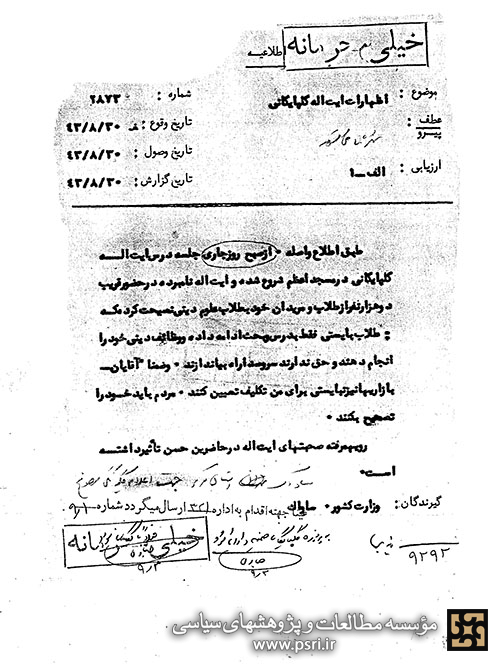 خیلی محرمانه
اطلاعیه
موضوع : اظهارات آیت اله گلپایگانی
شماره : ۲۸۷۳
عطف :
پیرو
تاریخ وقوع : ۴۳/۸/۳۰
تاریخ وصول : ۴۳/۸/۳۰
ارزیابی : الف-۱
تاریخ گزارش : ۴۳/۸/۳۰
طبق اطلاع واصله • ازصبح روزجاری جلسه درس ایت السه
گلپایگانی درمسجد اعظم شروع شده و ایت اله نامبرده درحضور قریب
دوهزارنفرازطلاب و مریدان خود بطلاب علوم دینی نصیحت کرد که
: طلاب بایستی فقط بدرس وبحث ادامه داده ووظائف دینی خود را
انجام دهند و حق ندارند سروصدا راه بیاندازند • وضمنا " آقایان
بازاریها نیز نبایستی برای من تکلیف تعیین کنند • مردم باید خود را
تصحیح بکنند •
رویهمرفته صحبتهای ایت اله درحاضرین حسن تأثیرداشته
است•
گیرندگان : وزارت کشور • ساواک
جهته اقدام به اداره ۳۲۱ ارسال میگردد شماره ۹/۱
خیلی محرمانه
۹/۳
۹/۳
۹۲۹۲
مؤسسه مطالعات و پژوهشهای سیاسی
www.psri.ir